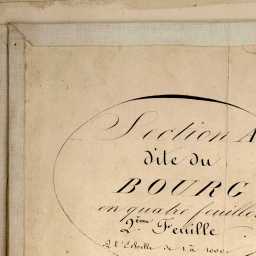 Section A
dite du
BOURG
en quatre feuilles
2ème Feuille
A l'Echelle de 1 à 1000